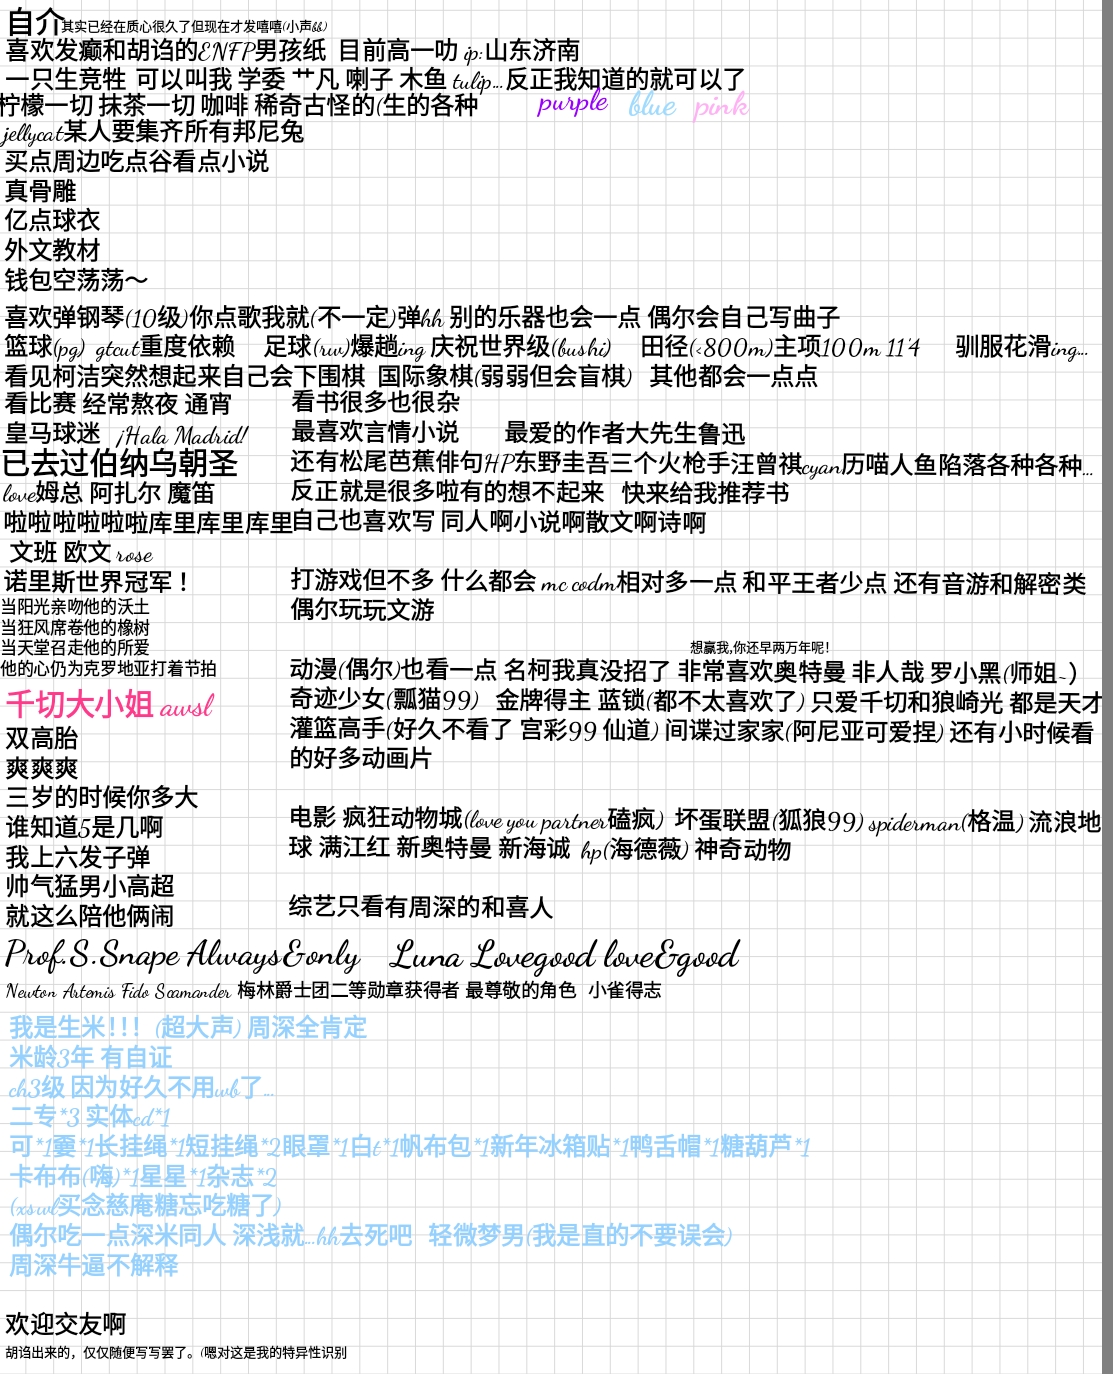 自介其实已经在质心很久了但现在才发嘻嘻(小声&&)
喜欢发癫和胡诌的ENFP男孩纸 目前高一叻 ip:山东济南
一只生竞牲 可以叫我 学委 艹凡 喇子 木鱼 tulip...反正我知道的就可以了
柠檬一切 抹茶一切 咖啡 稀奇古怪的(生的各种 purple blue pink
jellycat某人要集齐所有邦尼兔
买点周边吃点谷看点小说
真骨雕
亿点球衣
外文教材
钱包空荡荡～
喜欢弹钢琴(10级)你点歌我就(不一定)弹hh 别的乐器也会一点 偶尔会自己写曲子
篮球(pg) gtcut重度依赖 足球(rw)爆趟ing 庆祝世界级(bushi) 田径(<800m)主项100m 114 驯服花滑ing...
看见柯洁突然想起来自己会下围棋 国际象棋(弱弱但会盲棋) 其他都会一点点
看比赛 经常熬夜 通宵
皇马球迷 ¡Hala Madrid!
已去过伯纳乌朝圣
love姆总 阿扎尔 魔笛
啦啦啦啦啦啦库里库里库里
文班 欧文 rose
诺里斯世界冠军！
当阳光亲吻他的沃土
当狂风席卷他的橡树
当天堂召走他的所爱
他的心仍为克罗地亚打着节拍
千切大小姐 awsl
双高胎
爽爽爽
三岁的时候你多大
谁知道5是几啊
我上六发子弹
帅气猛男小高超
就这么陪他俩闹
看书很多也很杂
最喜欢言情小说 最爱的作者大先生鲁迅
还有松尾芭蕉俳句HP东野圭吾三个火枪手汪曾祺cyan历喵人鱼陷落各种各种...
反正就是很多啦有的想不起来 快来给我推荐书
自己也喜欢写 同人啊小说啊散文啊诗啊
打游戏但不多 什么都会 mc codm相对多一点 和平王者少点 还有音游和解密类
偶尔玩玩文游
想赢我,你还早两万年呢!
动漫(偶尔)也看一点 名柯我真没招了 非常喜欢奥特曼 非人哉 罗小黑(师姐~)
奇迹少女(瓢猫99) 金牌得主 蓝锁(都不太喜欢了) 只爱千切和狼崎光 都是天才
灌篮高手(好久不看了 宫彩99 仙道) 间谍过家家(阿尼亚可爱捏) 还有小时候看
的好多动画片
电影 疯狂动物城(love you partner磕疯) 坏蛋联盟(狐狼99) spiderman(格温) 流浪地
球 满江红 新奥特曼 新海诚 hp(海德薇) 神奇动物
综艺只看有周深的和喜人
Prof.S.Snape Always&only Luna Lovegood love&good
Newton Artemis Fido Scamander 梅林爵士团二等勋章获得者 最尊敬的角色 小雀得志
我是生米!!! (超大声) 周深全肯定
米龄3年 有自证
ch3级 因为好久不用wb了...
二专*3 实体cd*1
可*1嫑*1长挂绳*1短挂绳*2眼罩*1白t*1帆布包*1新年冰箱贴*1鸭舌帽*1糖葫芦*1
卡布布(嗨)*1星星*1杂志*2
(xswl买念慈庵糖忘吃糖了)
偶尔吃一点深米同人 深浅就...hh去死吧 轻微梦男(我是直的不要误会)
周深牛逼不解释
欢迎交友啊
胡诌出来的，仅仅随便写写罢了。(嗯对这是我的特异性识别